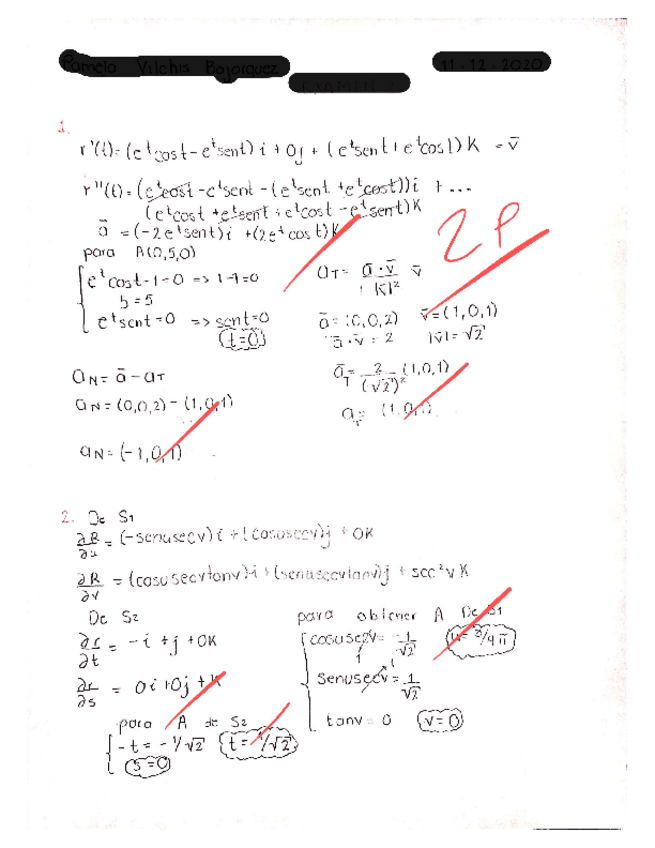 Pamela Vilchis Bojorquez
11-12-2020
1.
r'(t)=(e^t cost - e^t sent) i + 0j + (e^t sent + e^t cost) K = v̄
r''(t)=(e^t cost - e^t sent - (e^t sent + e^t cost)) i + ...
(e^t cost + e^t sent + e^t cost - e^t sent) K
ā = (-2e^t sent) i + (2e^t cos t) K
2P
para A(0,5,0)
e^t cost - 1 = 0 => 1-1=0
5=5
e^t sent = 0 => sent=0
(t=0)
aT = ā·v̄ / |v̄|² v̄
ā = (0,0,2) v̄=(1,0,1)
ā·v̄ = 2 |v̄| = √2
aN = ā - aT
āT = 2/(√2)² (1,0,1)
aN = (0,0,2) - (1,0,1)
aT = (1,0,1)
aN = (-1,0,1)
2. De S1
∂R/∂u = (-senusecv) i + (cosusecv) j + 0K
∂R/∂v = (cosusecvtanv) i + (senusecvtanv) j + sec²v K
De S2
∂r/∂t = -i + j + 0K
∂r/∂s = 0i + 0j + K
para A de S2
-t = -1/√2 t = 1/√2
s=0
para obtener A De S1
cosusecv = -1/√2
senusecv = 1/√2
tanv = 0 v=0